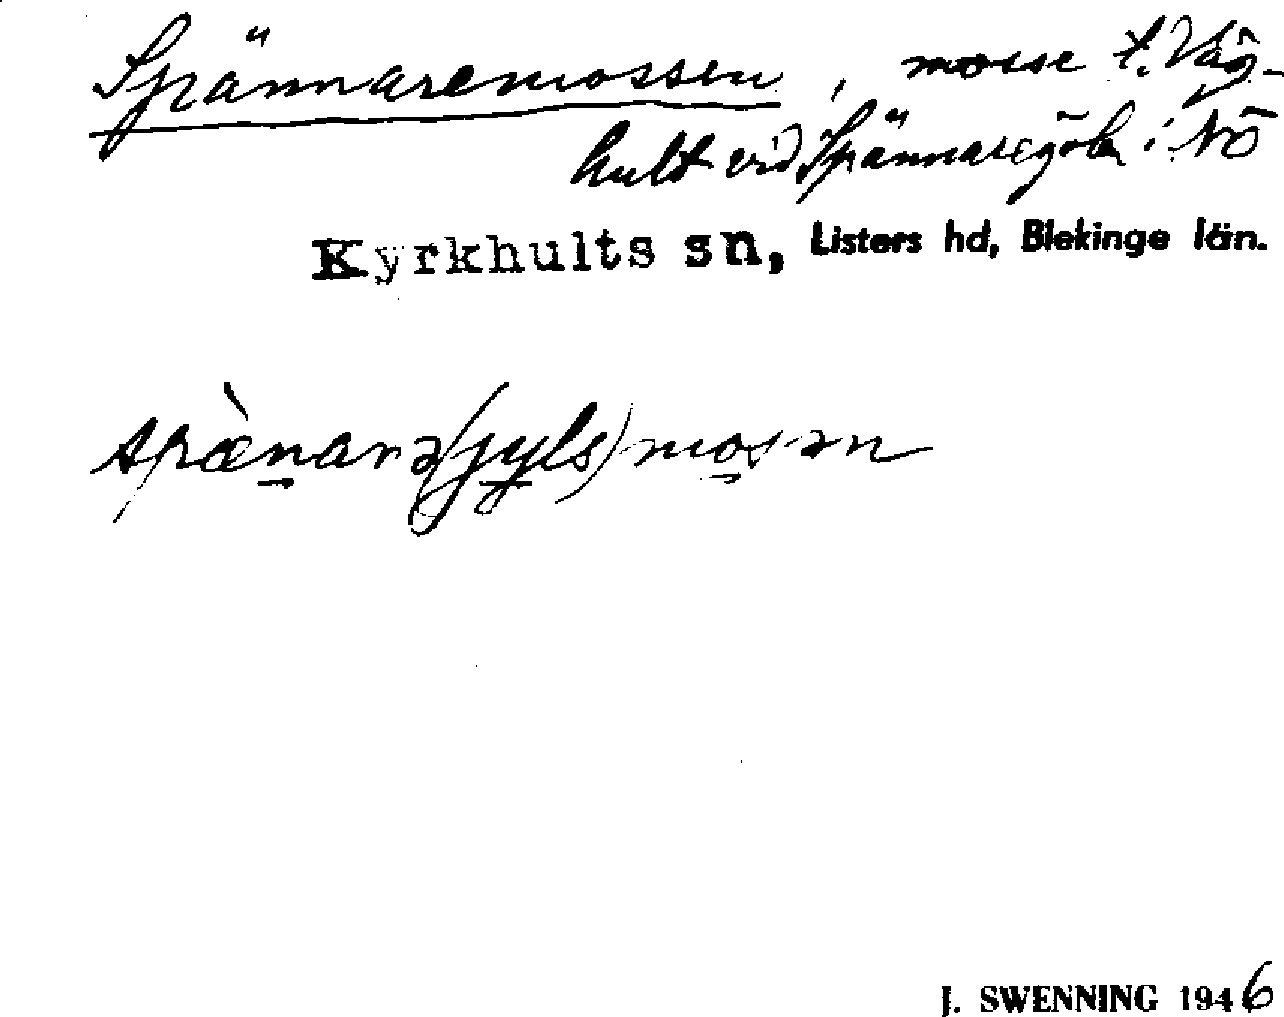 Spännaremossen, mosse t. Våg-
hult vid Spännaregöln i NÖ
Kyrkhults sn, Listers hd, Blekinge län.
spæ̀narə(jyls)mosən
J. SWENNING 1946